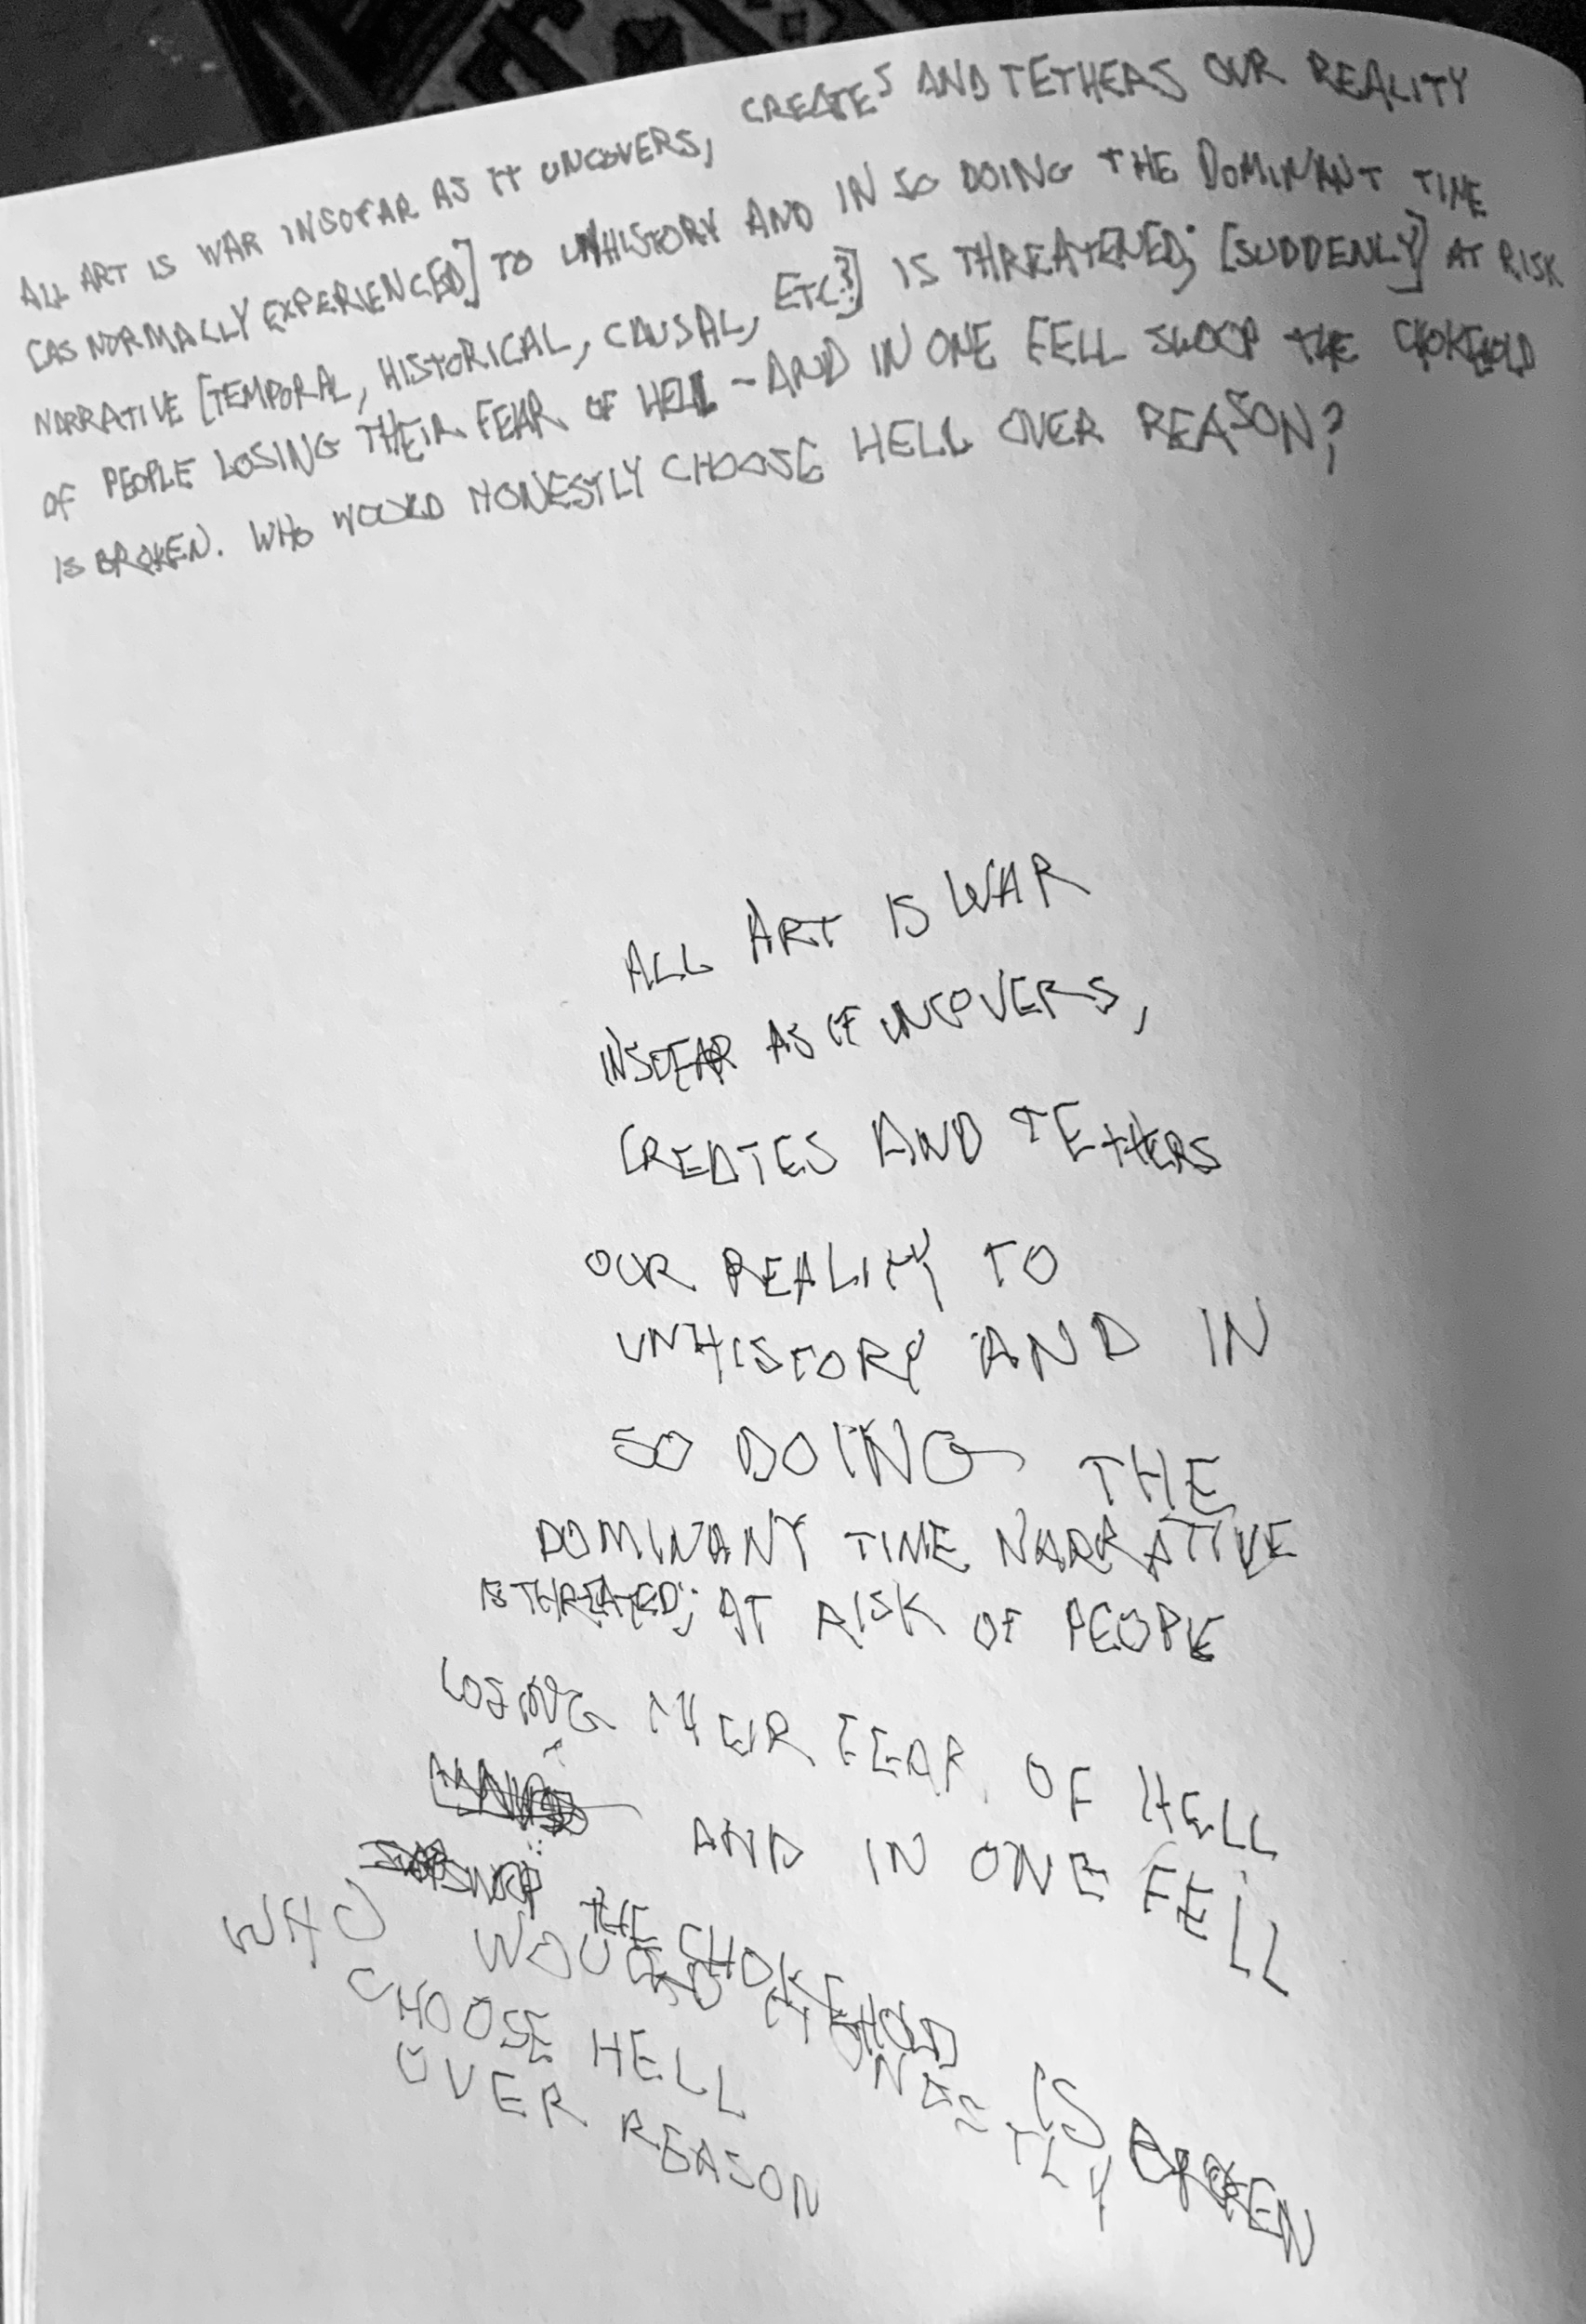 ALL ART IS WAR INSOFAR AS IT UNCOVERS, CREATES AND TETHERS OUR REALITY
[AS NORMALLY EXPERIENCED] TO UNHISTORY AND IN SO DOING THE DOMINANT TIME
NARRATIVE [TEMPORAL, HISTORICAL, CAUSAL, ETC?] IS THREATENED; [SUDDENLY] AT RISK
OF PEOPLE LOSING THEIR FEAR OF HELL - AND IN ONE FELL SWOOP THE CHOKEHOLD
IS BROKEN. WHO WOULD HONESTLY CHOOSE HELL OVER REASON?
ALL ART IS WAR
INSOFAR AS IT UNCOVERS,
CREATES AND TETHERS
OUR REALITY TO
UNHISTORY AND IN
SO DOING THE
DOMINANT TIME NARRATIVE
IS THREATED; AT RISK OF PEOPLE
LOSING THEIR FEAR OF HELL
AND IN ONE FELL
SWOOP THE CHOKEHOLD IS BROKEN
WHO WOULD HONESTLY
CHOOSE HELL
OVER REASON